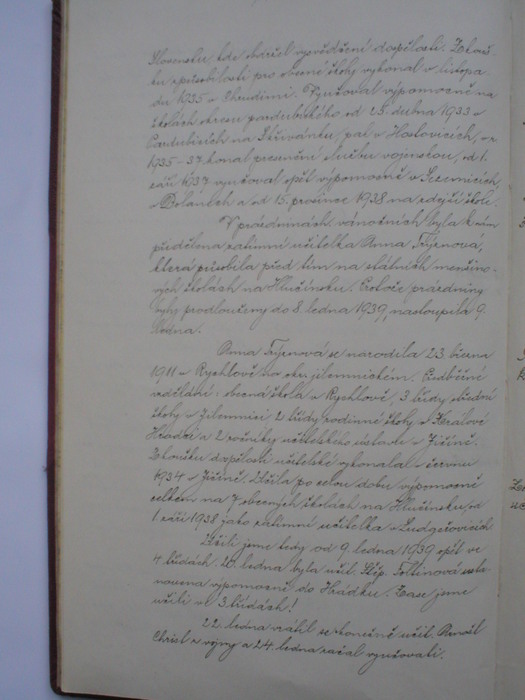 Slovensku, kde složil vysvědčení dospělosti. Zkouš-
ku způsobilosti pro obecné školy vykonal v listopa-
du 1935 v Chrudimi. Vyučoval výpomocně na
školách okresu pardubického od 25. dubna 1933 v
Pardubicích na Skřivánku, pak v Hostovicích, v r.
1935-37 konal presenční službu vojenskou, od 1.
září 1937 vyučoval opět výpomocně v Sezemicích,
v Dolanech a od 15. prosince 1938 na zdejší škole.
V prázdninách vánočních byla k nám
přidělena zatímní učitelka Anna Fejjenova,
která působila před tím na státních menšino-
vých školách na Hlučínsku. Protože prázdniny
byly prodlouženy do 8. ledna 1939, nastoupila 9.
ledna.
Anna se narodila 23. března
1911 v Rychlově na okr. jilemnickém. Předběžné
vzdělání: obecná škola v Rychlově, 3 třídy střední
školy v Jilemnici 2 třídy rodinné školy v Králové
Hradci a 2 ročníky učitelského ústavu v Jičíně.
Zkoušku dospělosti učitelské vykonala v červnu
1934 v Jičíně. Učila po celou dobu výpomocně
celkem na 7 obecných školách na Hlučínsku, od
1. září 1938 jako zatímní učitelka v Ludgeřovicích.
Učili jsme tedy od 9. ledna 1939 opět ve
4 třídách. 20. ledna byla učit. Štěp. Foltinová usta-
novena výpomocně do Hrádku. Zase jsme
učili v 3. třídách!
22. ledna vrátil se konečně učit. Arnošt
Christ z vojny a 24. ledna začal vyučovati.